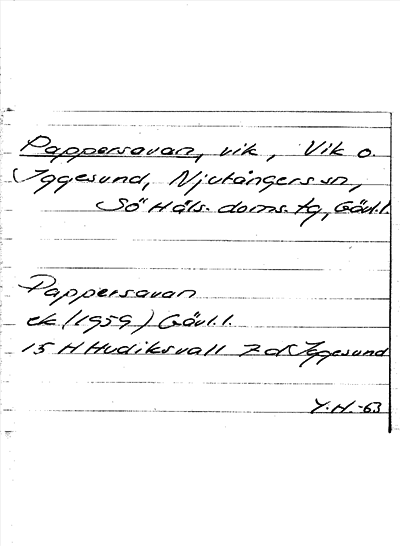 Pappersavan, vik, Vik o.
Iggesund, Njutångers sn,
Sö Häls. doms. tg, Gävl.l.
Pappersavan
ek (1959) Gävl.l.
15 H Hudiksvall 7 d Iggesund
Y.H.-63